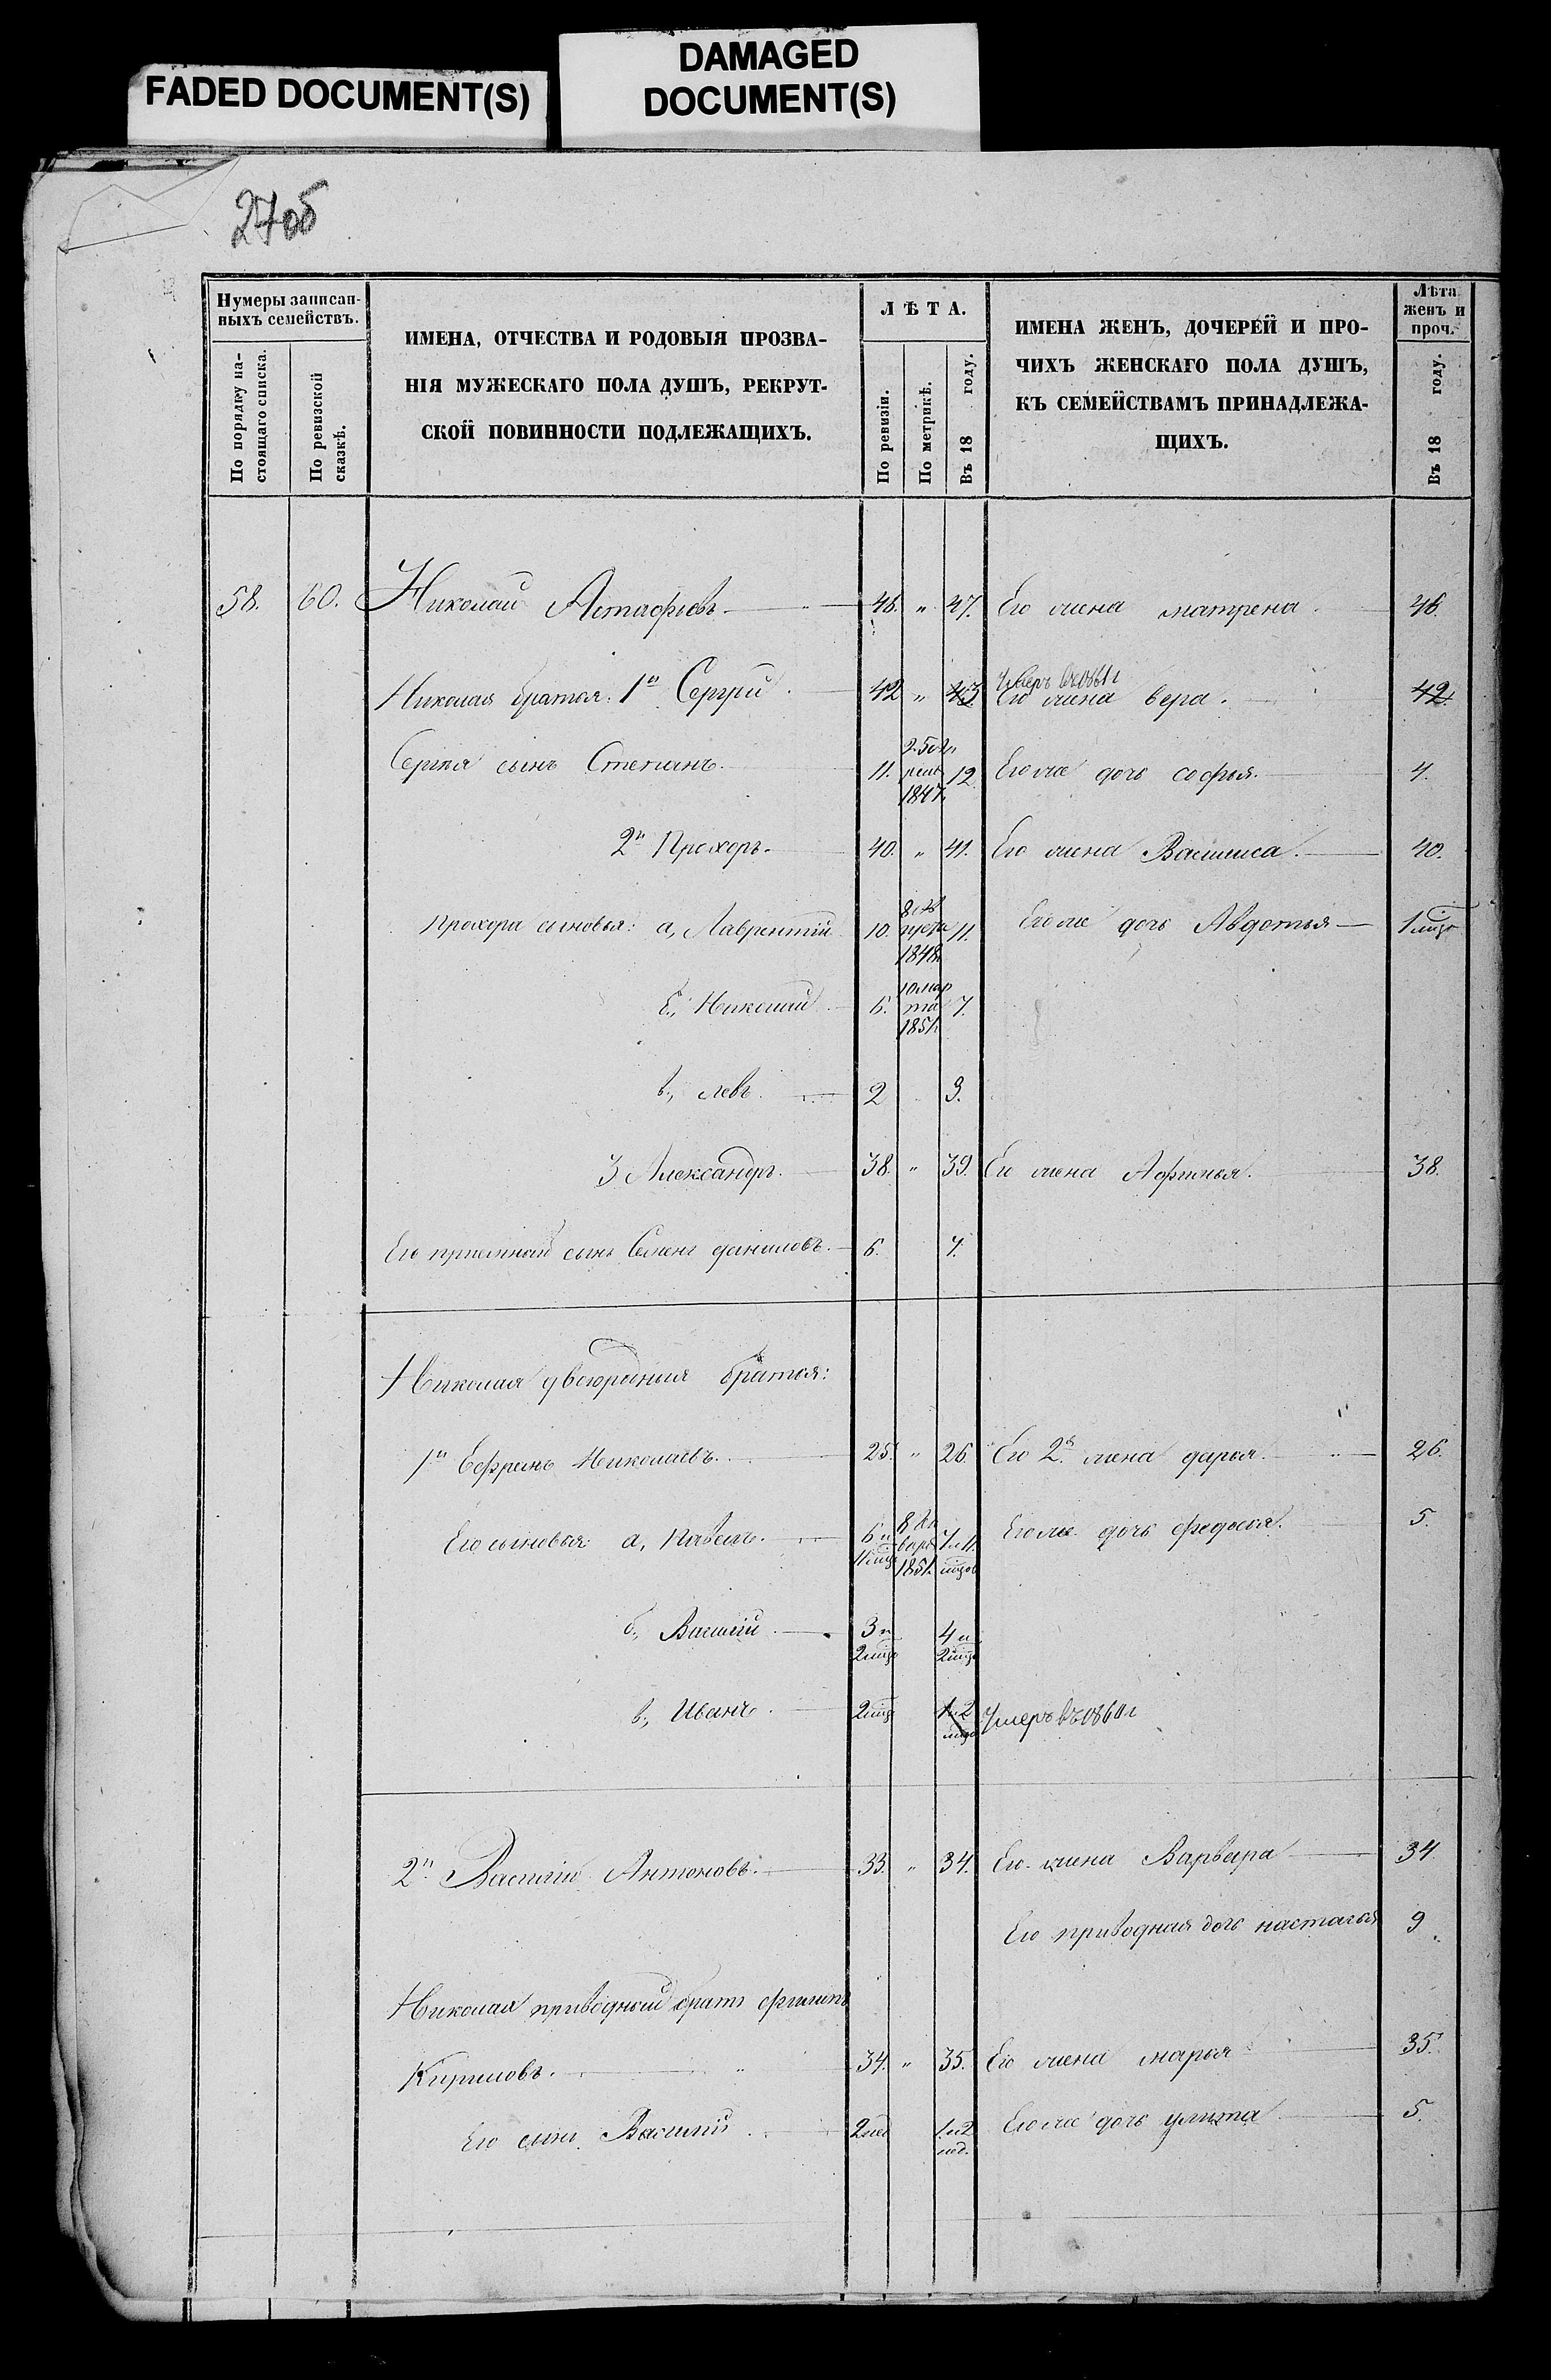 FADED DOCUMENT(S)
DAMAGED
DOCUMENT(S)
27об
Нумеры записан-
ныхъ семействъ.
По порядку на-
стоящаго списка.
По ревизской
сказкѣ.
ИМЕНА, ОТЧЕСТВА И РОДОВЫЯ ПРОЗВА-
НІЯ МУЖЕСКАГО ПОЛА ДУШЪ, РЕКРУТ-
СКОЙ ПОВИННОСТИ ПОДЛЕЖАЩИХЪ.
ЛѢТА.
По ревизіи.
По метрикѣ.
Въ 18 году.
ИМЕНА ЖЕНЪ, ДОЧЕРЕЙ И ПРО-
ЧИХЪ ЖЕНСКАГО ПОЛА ДУШЪ,
КЪ СЕМЕЙСТВАМЪ ПРИНАДЛЕЖА-
ЩИХЪ.
Лѣта
женъ и
проч.
Въ 18 году.
58. 60. Николай Астафьевъ 46. " 47. Его жена матрена 46.
Николая братья: 1й Сергѣй 42 " 43 Его жена вера. 42.
Сергѣя сынъ Степанъ. 11. 1847. 12 Его же дочь софья. 4.
2й Прохоръ. 40. " 41. Его жена Василиса. 40.
Прохора сыновья: а, Лаврентій 10. 1848. 11. Его же дочь Авдотья 1 мцъ
б., Николай 6. 10 мар
та
1851. 7.
в., левъ. 2 3.
3 Александръ. 38. " 39. Его жена Афимья. 38.
Его приемный сынъ Семенъ даниловъ. 6. 7.
Николая двоюродныя братья:
1й Ефремъ Николаевъ. 25. " 26. Его 2я жена дарья. 26.
Его сыновья: а, павелъ. 6 и
11 мцъ 1851. 7 и 11.
мцов Его же дочь федосья. 5.
б., Василій 3 и
2 мцъ 4 и
2 мцъ
в., Иванъ. 2 мцъ 1 и 2
мцъ Умеръ въ 1860 г
2й Василій Антоновъ. 33. " 34. Его жена Варвара 34
Его приводная дочь настасья 9
Николая приводный братъ филипъ
Кириловъ. 34. " 35. Его жена марья 35.
Его сынъ Василий 2 нед 1 и 2
нед. Его же дочь улита 5.